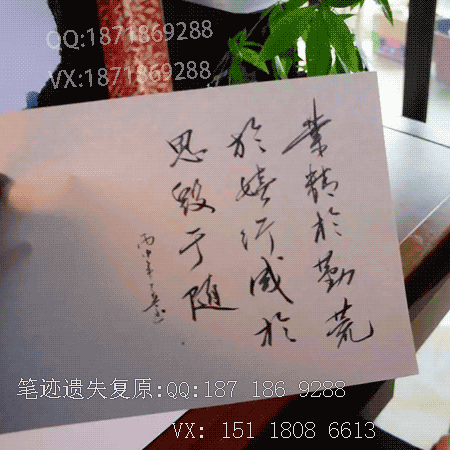 QQ:1871869288
VX:1871869288
業精於勤荒
於嬉行成於
思毁于随
丙申年
笔迹遗失复原:QQ:187 186 9288
VX: 151 1808 6613